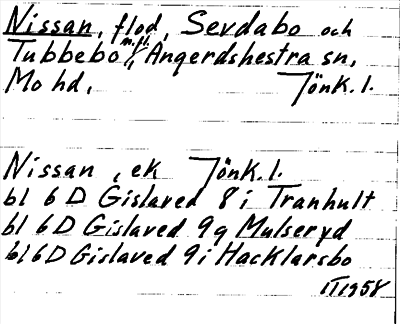 Nissan, flod, Sevdabo och
Tubbebo m.fl., Angerdshestra sn,
Mo hd, Jönk. l.
Nissan, ek Jönk. l.
bl 6 D Gislaved 8 i Tranhult
bl 6 D Gislaved 9 g Mulseryd
bl 6 D Gislaved 9 i Hacklarsbo
1958